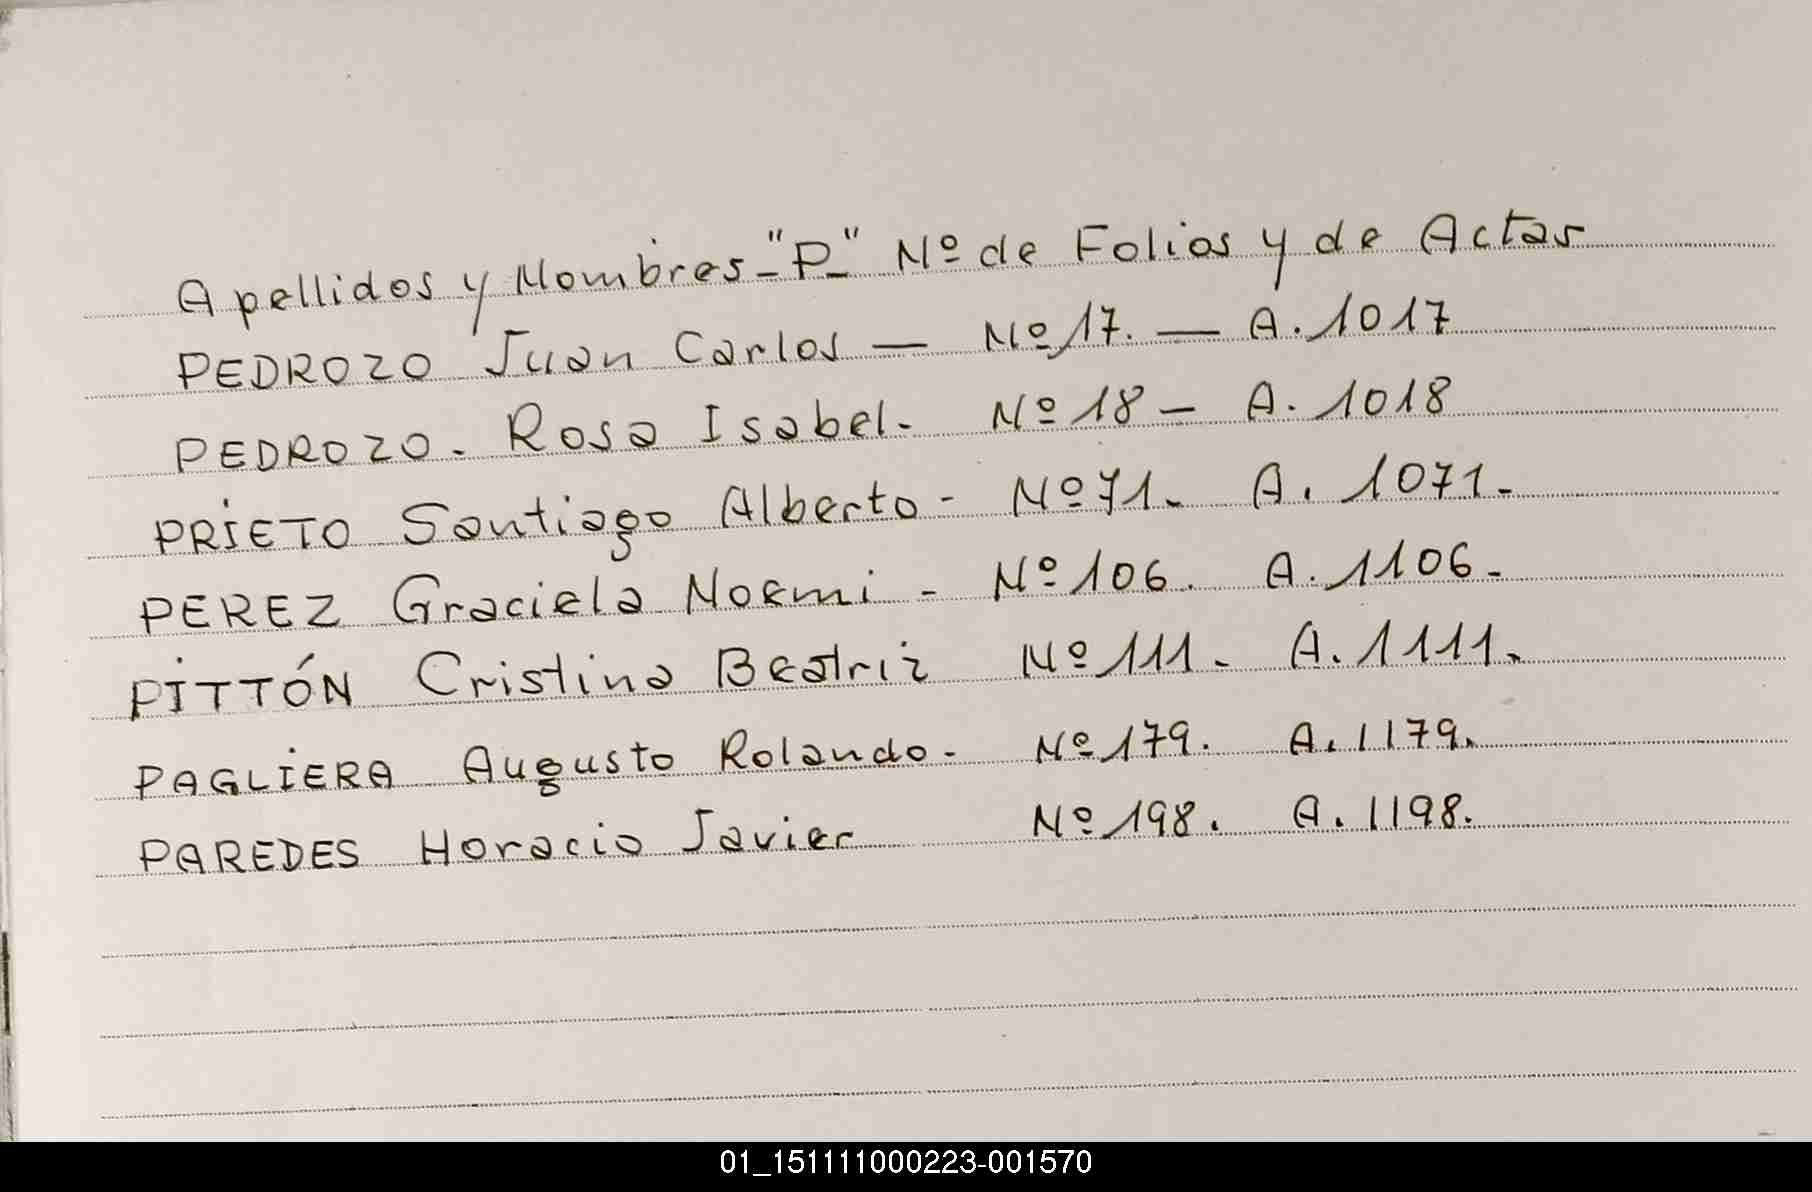 Apellidos y Nombres - "P" Nº de Folios y de Actas
PEDROZO Juan Carlos — Nº 17. — A. 1017
PEDROZO. Rosa Isabel. Nº 18 - A. 1018
PRIETO Santiago Alberto - Nº 71. A. 1071.
PEREZ Graciela Noemi - Nº 106. A. 1106.
PITTÓN Cristina Beatriz Nº 111. A. 1111.
PAGLIERA Augusto Rolando - Nº 179. A. 1179.
PAREDES Horacio Javier Nº 198. A. 1198.
01_151111000223-001570